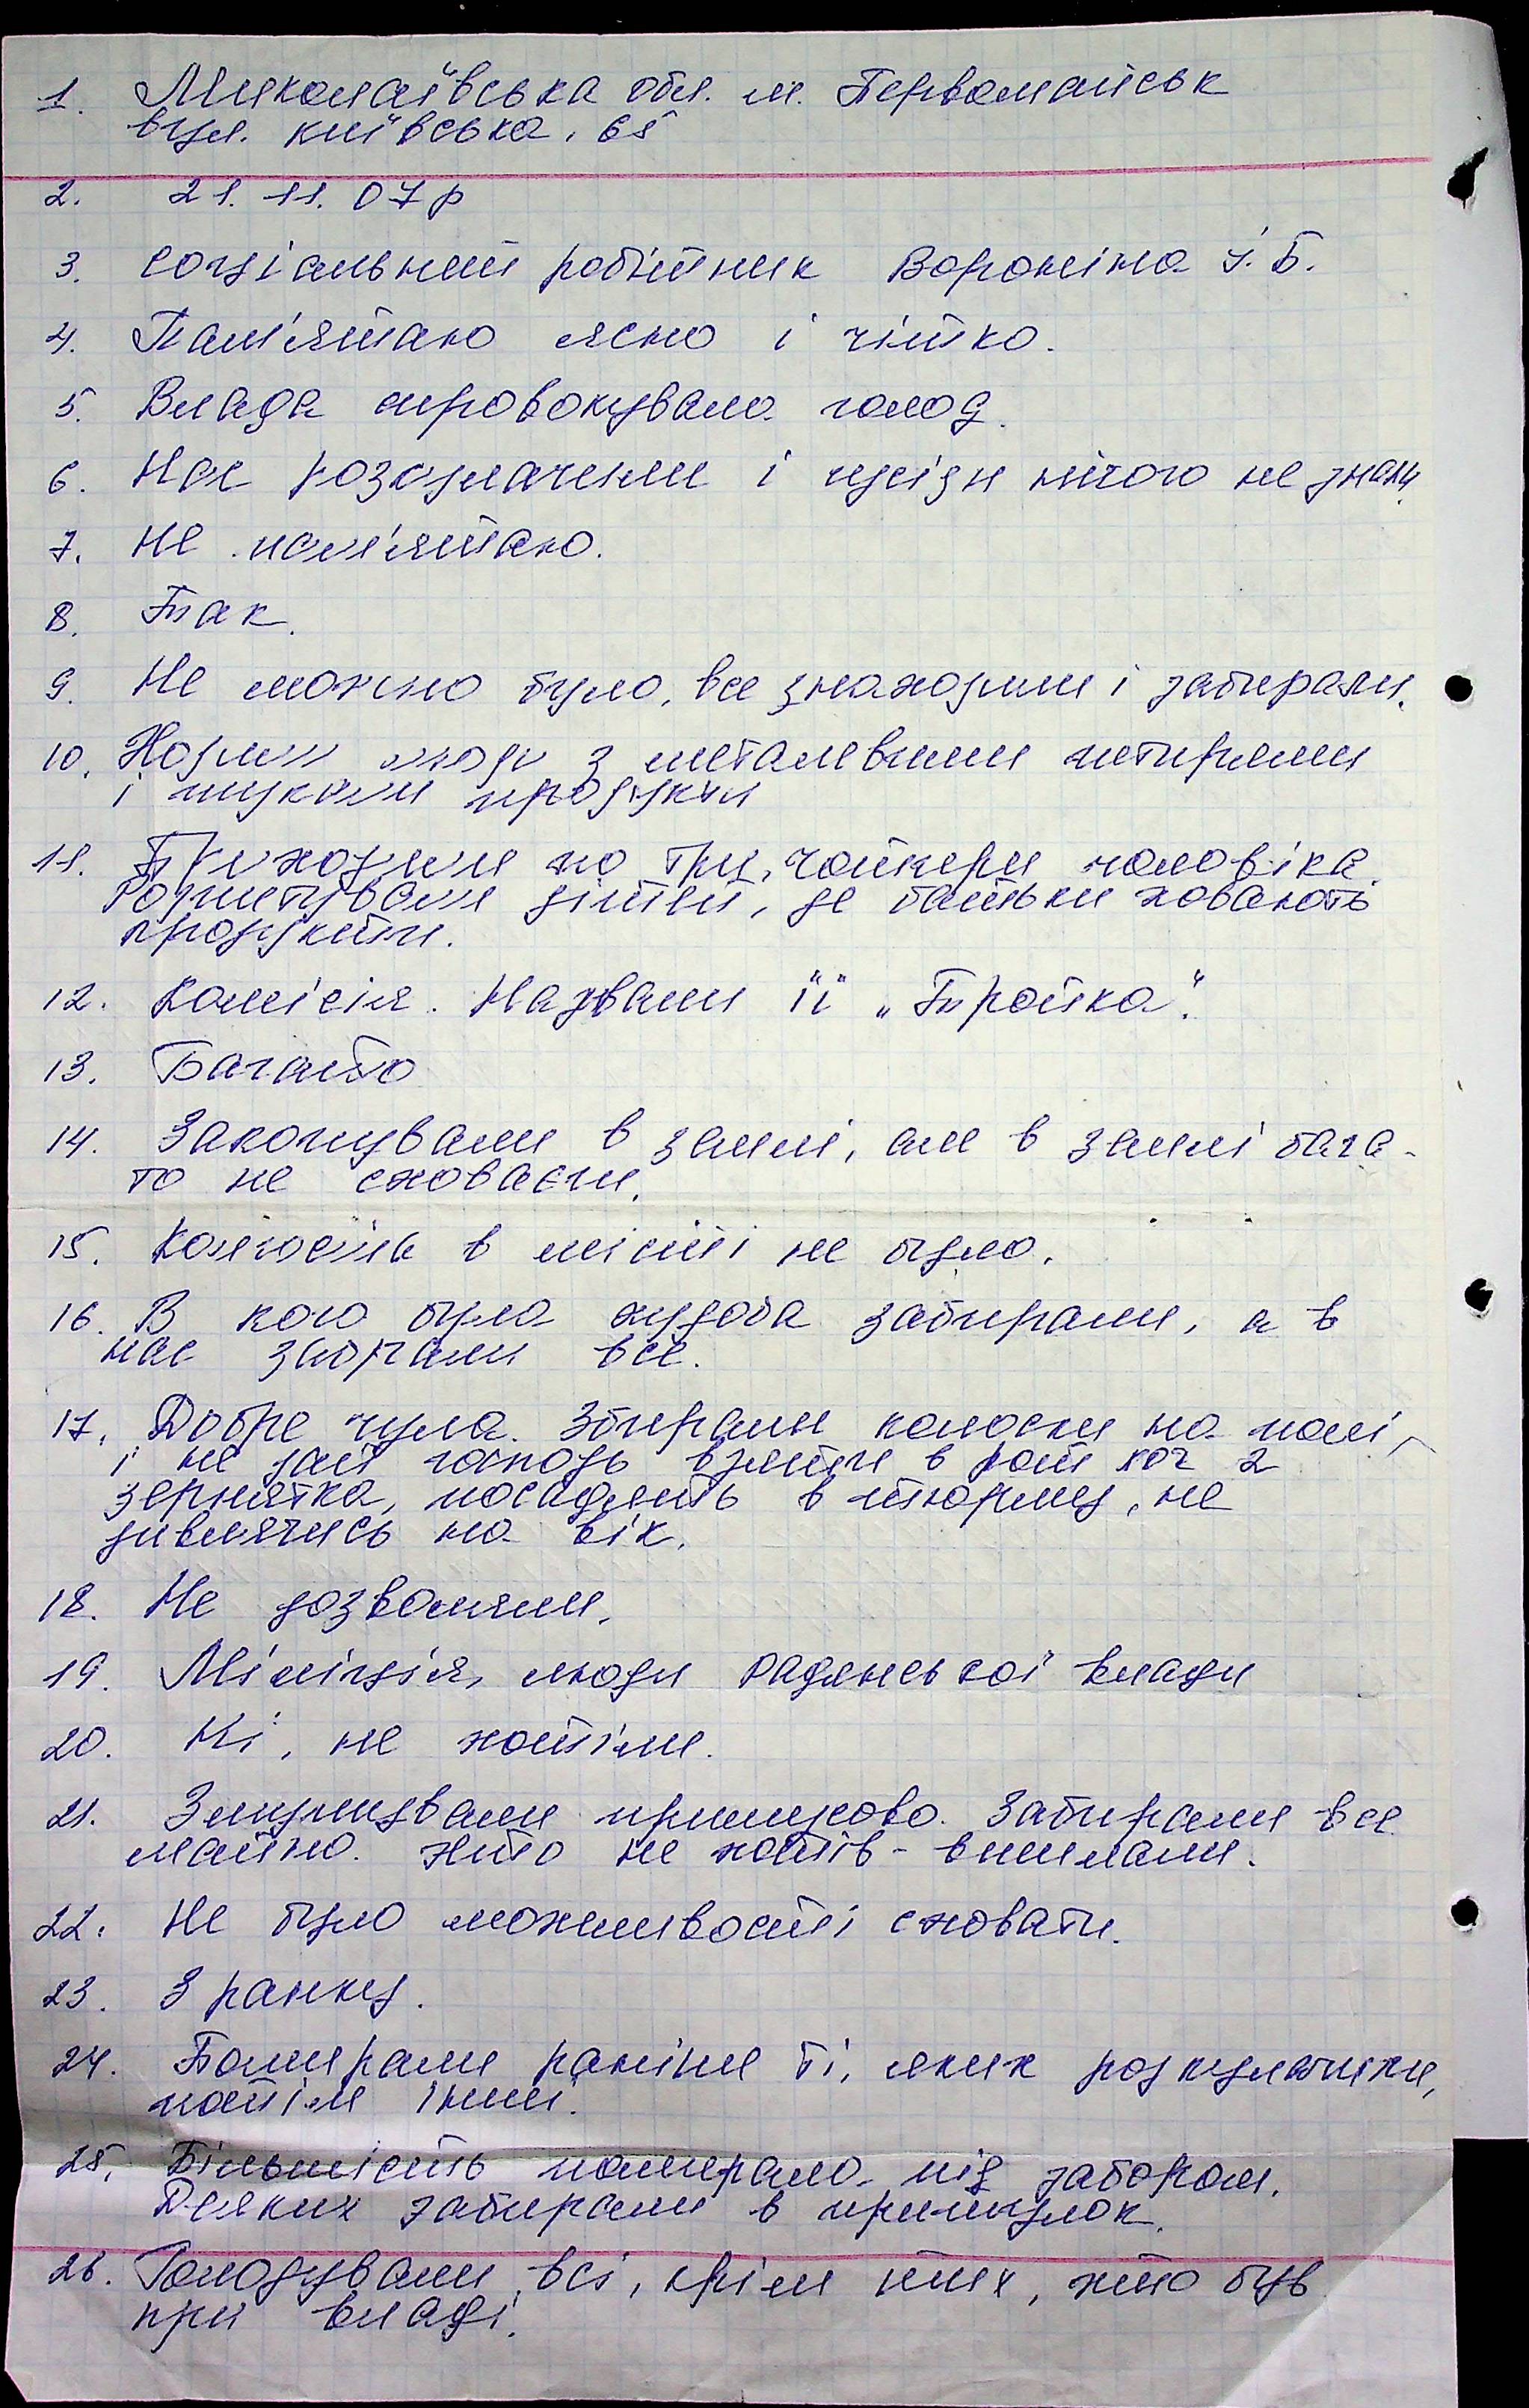 1. Миколаївська обл. м. Первомайськ
вул. Київська, 68
2. 21. 11. 07 р
3. Соціальний робітник Вороніна І. Б.
4. Пам'ятаю ясно і чітко.
5. Влада спровокувала голод.
6. Нас розкуркулили і сусіди нічого не знали
7. Не пам'ятаю.
8. Так.
9. Не можно було, все знаходили і забирали.
10. Ходили люди з металевими штирями
і шукали продукти
11. Приходили по три, чотири чоловіка.
Розпитували дітей, де батьки ховають
продукти.
12. Комісія. Назвали її „Тройка".
13. Багато
14. Закопували в землі, але в землі бага-
то не сховаєш.
15. Колгоспів в місті не було.
16. В кого була худоба забирали, а в
нас забрали все.
17. Добре чула. Збирали колоски на полі,
і не дай господь взяти в рот хоч 2
зернятка, посадять в тюрму, не
дивлячись на вік.
18. Не дозволяли.
19. Міліція, люди радянської влади
20. Ні, не хотіли.
21. Змушували примусово. Забирали все
майно. Хто не хотів - висилали.
22. Не було можливості сховати.
23. З ранку.
24. Помирали раніше ті, яких розкулачили,
потім інші.
25. Більшість помирало під забором.
Деяких забирали в притулок.
26. Голодували всі, крім тих, хто був
при владі.